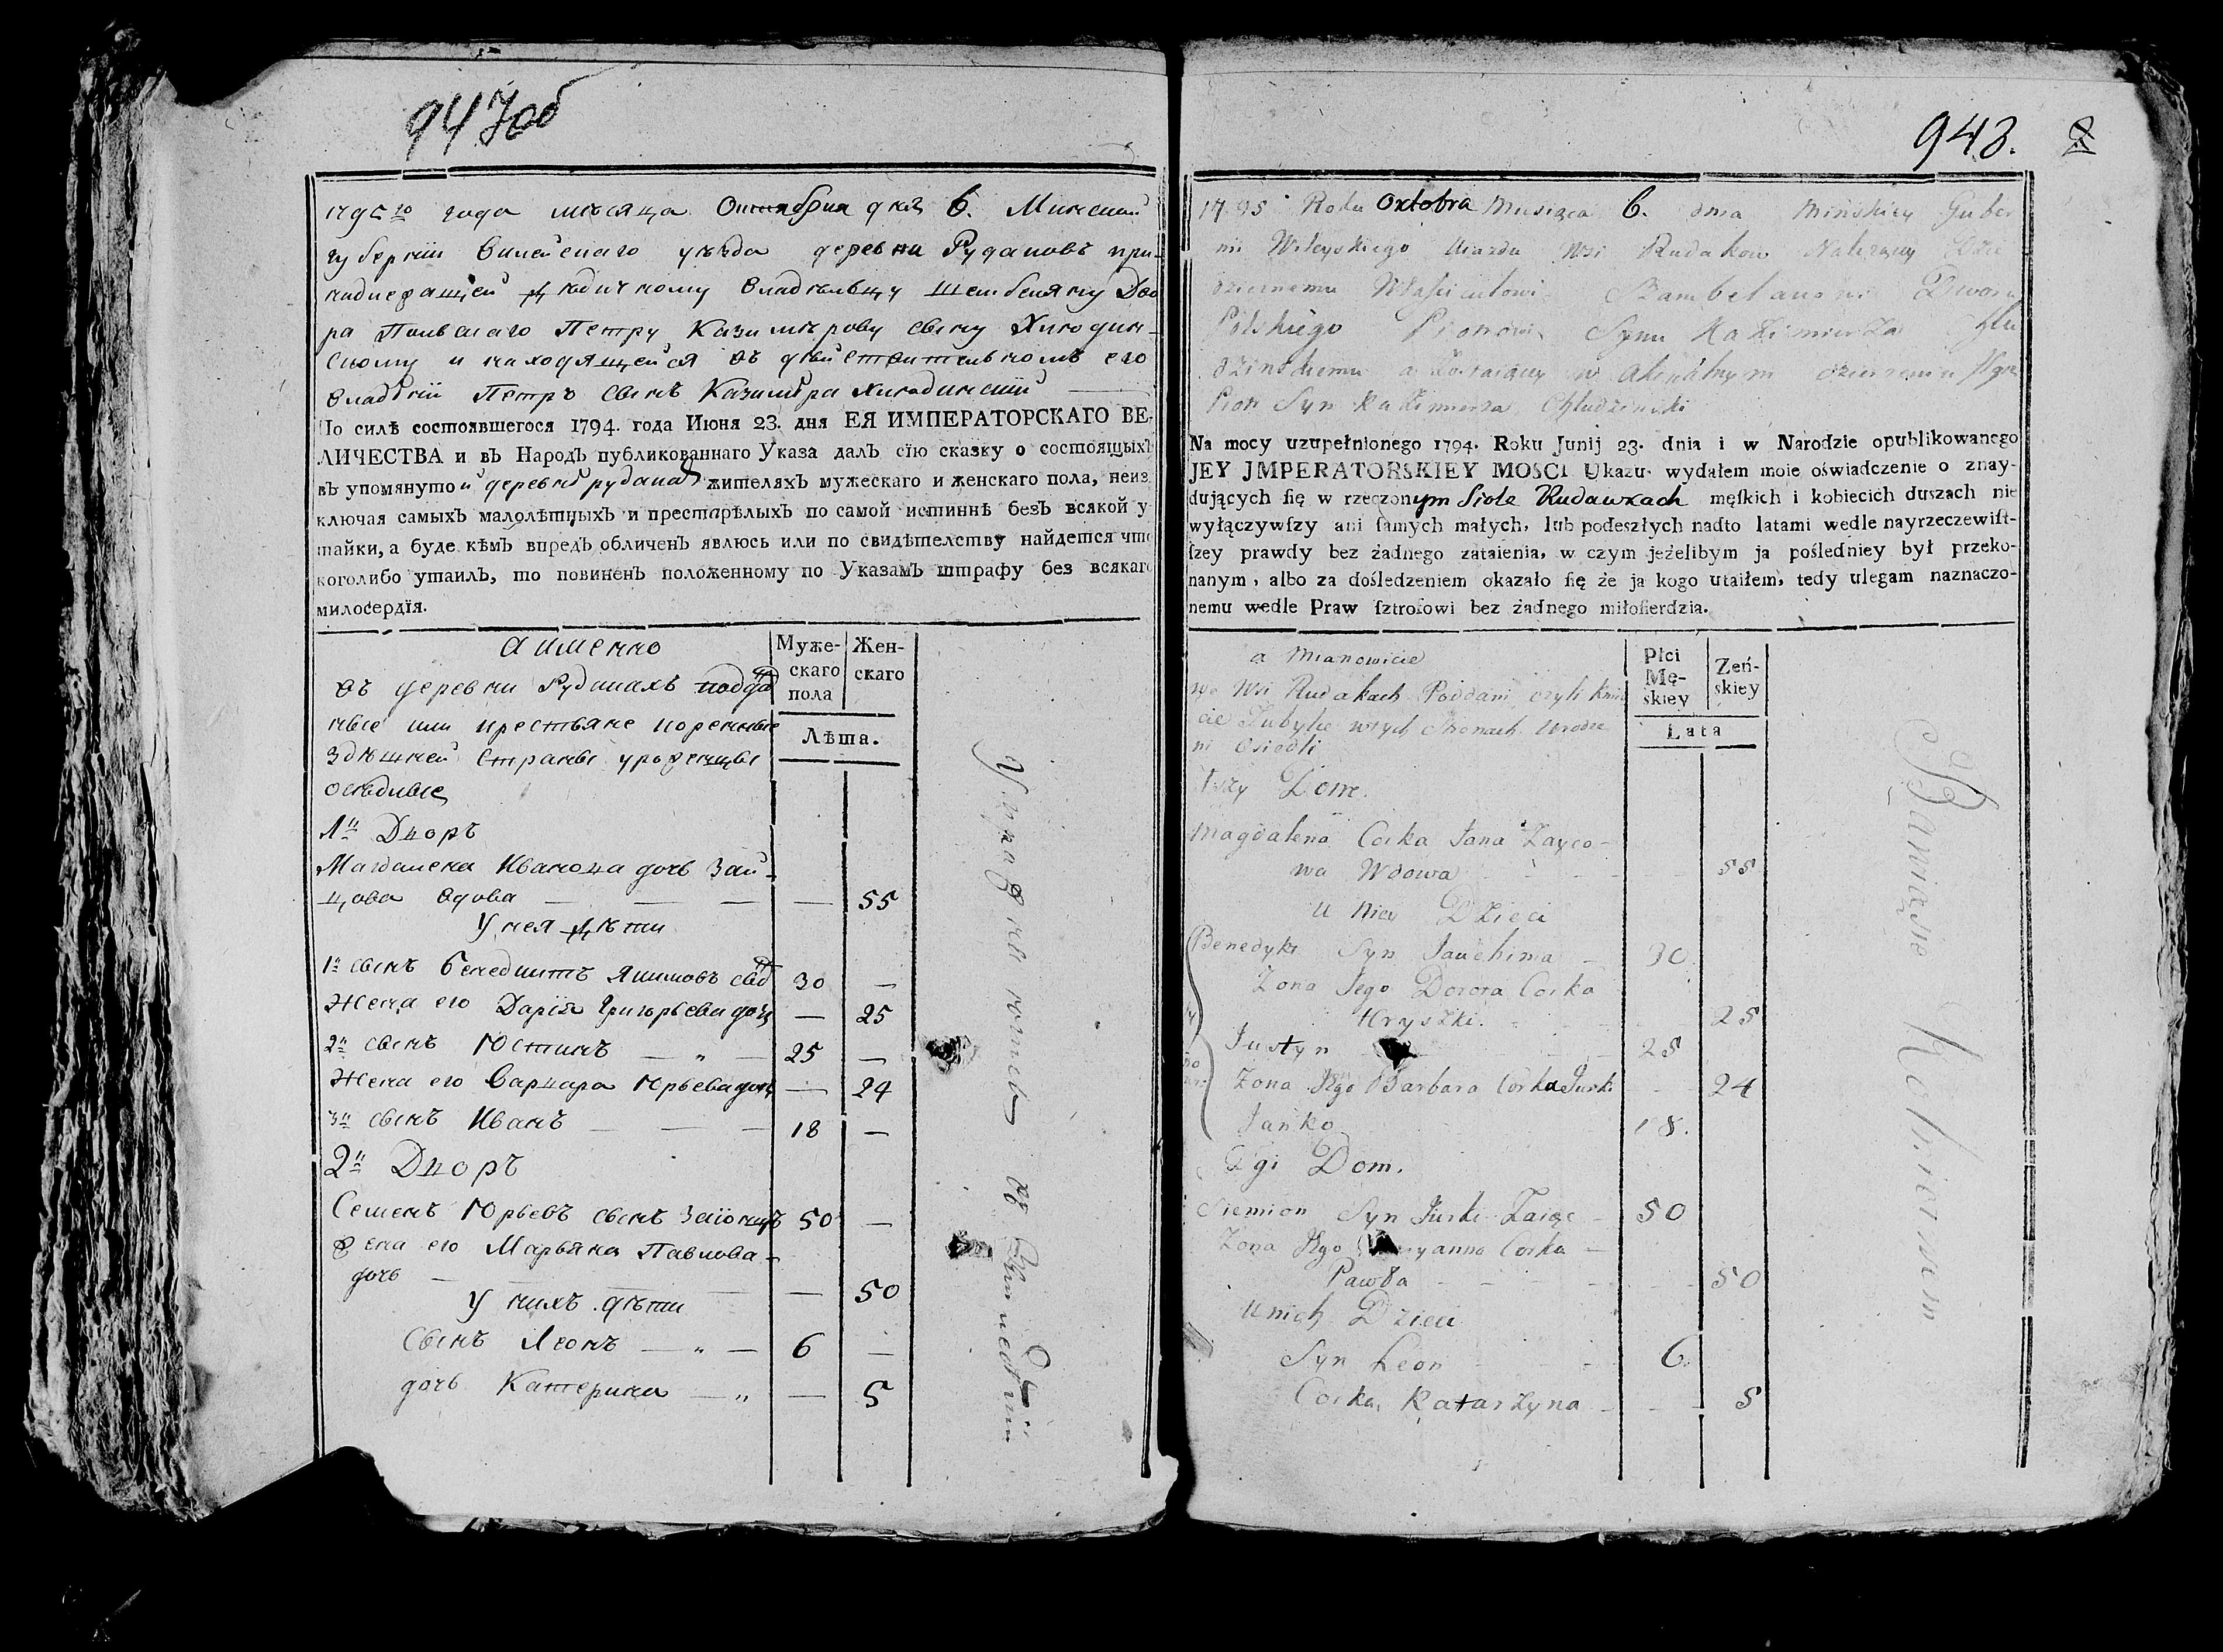 947об
1795го года мѣсяца Октября дня 6. Минской
губернии Вилейскаго уѣзда деревни Рудаковъ при-
надлежащей дѣдичному владѣльцу шембеляну Дво
ра Польскаго Петру Казимѣрову сыну Хлюдзин-
скому и находящейся въ дѣйствительномъ его
владѣнїи Петръ сынъ Казимѣра Хлюдзинскїй
По силѣ состоявшегося 1794. года Июня 23. дня ЕЯ ИМПЕРАТОРСКАГО ВЕ-
ЛИЧЕСТВА и въ Народъ публикованнаго Указа далъ сїю сказку о состоящыхъ
въ упомянутой деревнѣ рудаках жителяхъ мужескаго и женскаго пола, неиз
ключая самыхъ малолѣтныхъ и престарѣлыхъ по самой истиннѣ безъ всякой у
тайки, а буде кѣмъ впредъ обличенъ явлюсь или по свидѣтелству найдется что
коголибо утаилъ, то повиненъ положенному по Указамъ штрафу без всякаго
милосердїя.
а именно
Муже-
скаго
пола
Жен-
скаго
Лѣта.
въ деревни Рудакахъ поддан
ные или крестьяне коренные
здѣшней страны уроженцы
осѣдлые
1й Дворъ
Магдалена Иванова дочь Зай-
цова вдова — 55
У нея дѣти
1й сынъ Бенедиктъ Якимовъ 30 —
Жена его Дарїя Григорьева дочь — 25
2й сынъ Юстинъ — 25 —
Жена его Варвара Юрьева дочь — 24
3й сынъ Иванъ — 18 —
2й Дворъ
Семенъ Юрьевъ сынъ Заїонцъ 50 —
жена его Марьяна Павлова
дочь — 50
У нихъ дѣти
Сынъ Леонъ — 6 —
дочь Катерина — 5
943. 2
1795 Roku Oktobra Miesiąca 6. dnia Mińskiey Guber
nii Wileyskiego Ujazdu Wsi Rudakow Należącey Dzie
dzicznemu Właścicielowi Szambelanowi Dworu
Polskiego Piotrowi Synu Kazimierza Chlu
dzinskiemu a zostaiącey w aktualnym dzierżeniu Jego
Piotr Syn Kazimierza Chludzinski
Na mocy uzupełnionego 1794. Roku Junij 23. dnia i w Narodzie opublikowanego
JEY JMPERATORSKIEY MOSCI Ukazu wydałem moie oświadczenie o znay-
dujących ſię w rzeczonym Siole Rudawkach męſkich i kobiecich duszach nie
wyłączywſzy ani ſamych małych, lub podeszłych nadto latami wedle nayrzeczewiſt-
ſzey prawdy bez żadnego zataienia, w czym jeżelibym ja poſledniey był przeko-
nanym, albo za dośledzeniem okazało ſię że ja kogo utaiłem, tedy ulegam naznaczo-
nemu wedle Praw ſztrofowi bez żadnego miłoſierdzia.
a Mianowicie
Płci
Mę-
skiey
Żeń-
skiey
Lata
we Wsi Rudakach Poddani czyli Kmie
cie Tubylce w tych Stronach Urodze
ni Osiedli
1szy Dom.
Magdalena Corka Jana Zayco-
wa Wdowa — 55
U Niey Dzieci
Benedykt Syn Jauchima — 30
Zona Jego Dorota Corka
Hryszki. — 25
Justyn — 25
Zona Jego Barbara Corka Jurki — 24
Janko 18.
2gi Dom.
Siemion Syn Jurki Zaiąc — 50
Zona Jego Maryanna Corka —
Pawła — 50
U nich Dzieci
Syn Leon — 6.
Corka Katarzyna — 5